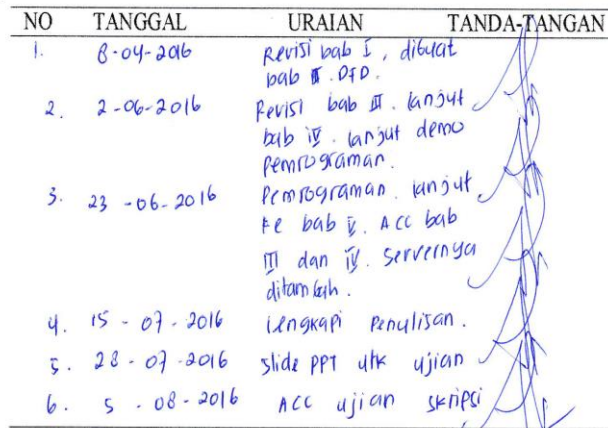 NO TANGGAL URAIAN TANDA-TANGAN
1. 8-04-2016 Revisi bab I, dibuat
bab II. DFD.
2. 2-06-2016 Revisi bab III. lanjut
bab IV. lanjut demo
Pemrograman.
3. 23-06-2016 Pemrograman. lanjut
ke bab V. ACC bab
III dan IV. Servernya
ditambah.
4. 15-07-2016 lengkapi Penulisan.
5. 28-07-2016 Slide PPT utk ujian
6. 5-08-2016 ACC ujian skripsi